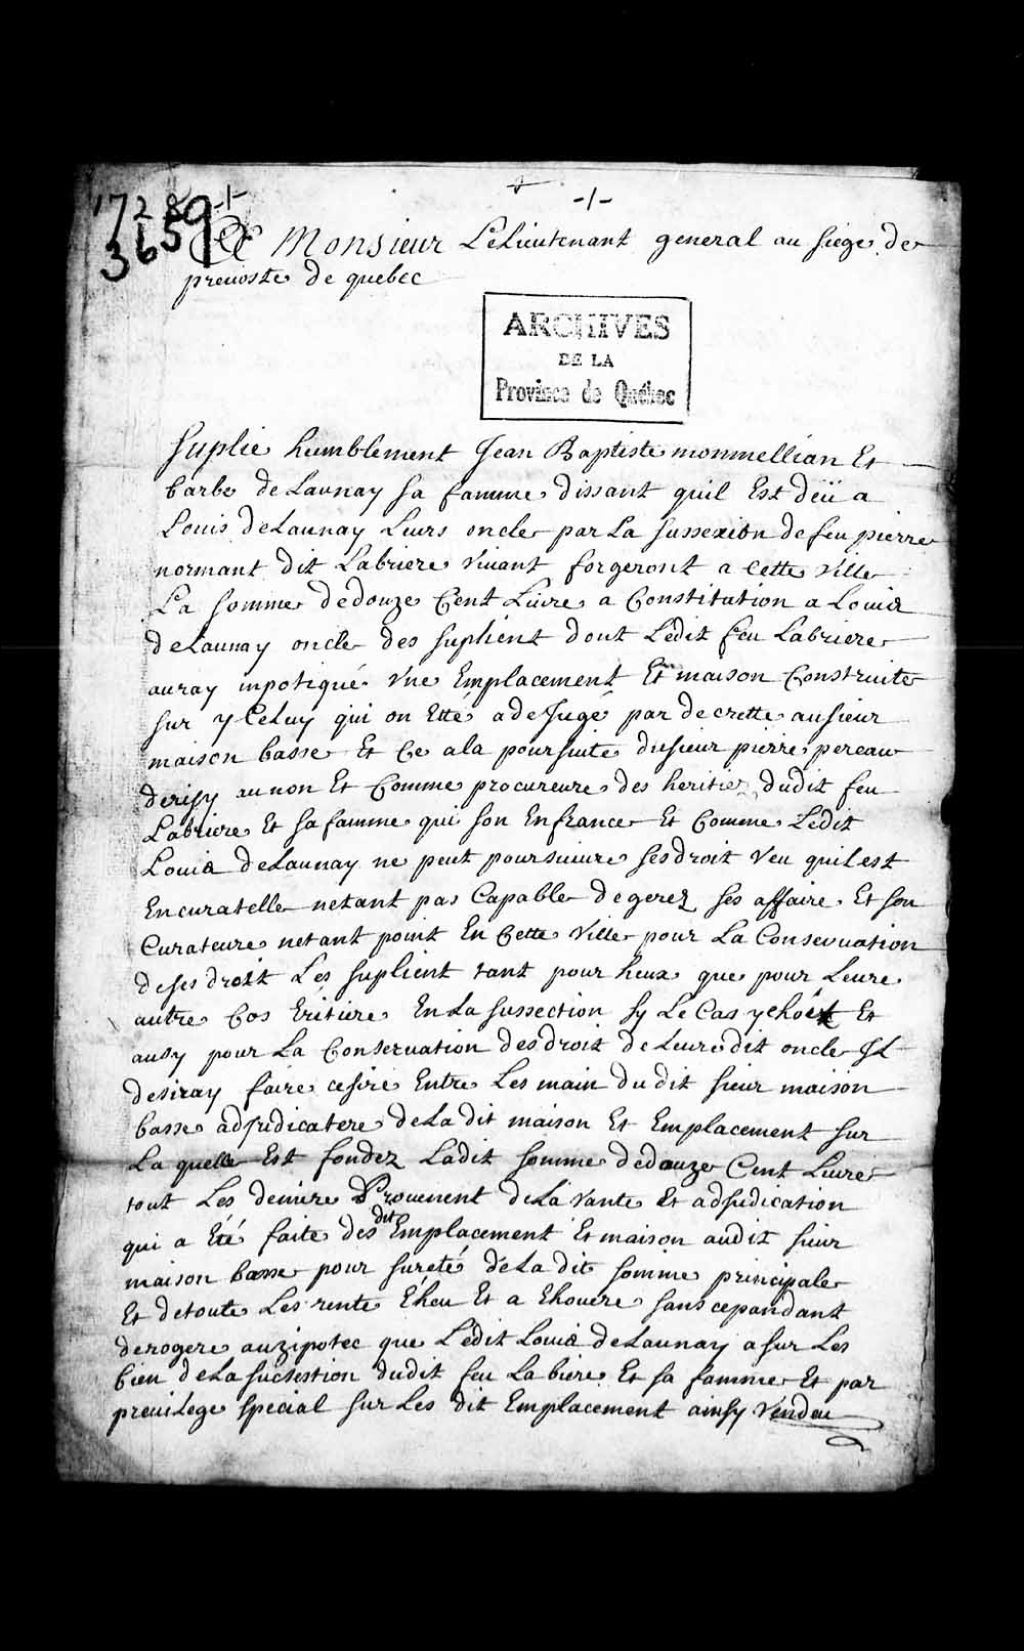 -/-
1728
3659
A Monsieur Le Lieutenant general au siege de
preuoste de quebec
ARCHIVES
DE LA
Province de Québec
suplie humblement Jean Baptiste monmellian Et
barbe de Launay sa famme dissant quil Est deü a
Louis deLaunay Leurs oncle par La sussexion de feu pierre
normant dit Labriere viuant forgeront a Cette ville
La somme de douze Cent Liure a Constitution a Louis
deLaunay oncle des suplient dont Ledit feu Labriere
auray inpotiqué vne Emplacement Et maison Construite
sur y Celuy qui on Etté adeJugé par decrette ausieur
maison basse Et Ce ala poursuite dusieur pierre pereau
derisy au non Et Comme procureure des heritie dudit feu
Labriere Et sa famme qui son En france Et Comme Ledit
Louis deLaunay ne peut poursuiure ses droit veu quil est
En curatelle netant pas Capable de gerez ses affaire Et son
Curateure netant point En Cette ville pour La Conseruation
de ses droit Les suplient tant pour heux que pour Leure
autre Cos Eritiere En La sussection sy Le Cas y Et
ausy pour La Conseruation des droit de Leure dit oncle IL
desiray faire cesire Entre Les main du dit sieur maison
basse adjudicatere de La dit maison Et Emplacement sur
La quelle Est fondez Ladit somme de douze Cent Liure
tout Les deniere Prouenent de La vante Et adjudication
qui a Eté faite des dit Emplacement Et maison audit sieur
maison basse pour sureté de La dit somme principale
Et de toute Les rente Eheu Et a Ehouere sans cepandant
derogere auzipotec que Ledit Louis deLaunay a sur Les
bien de La sucsestion dudit feu La biere Et sa famme Et par
preuilege special sur Les dit Emplacement ainsy vendeu